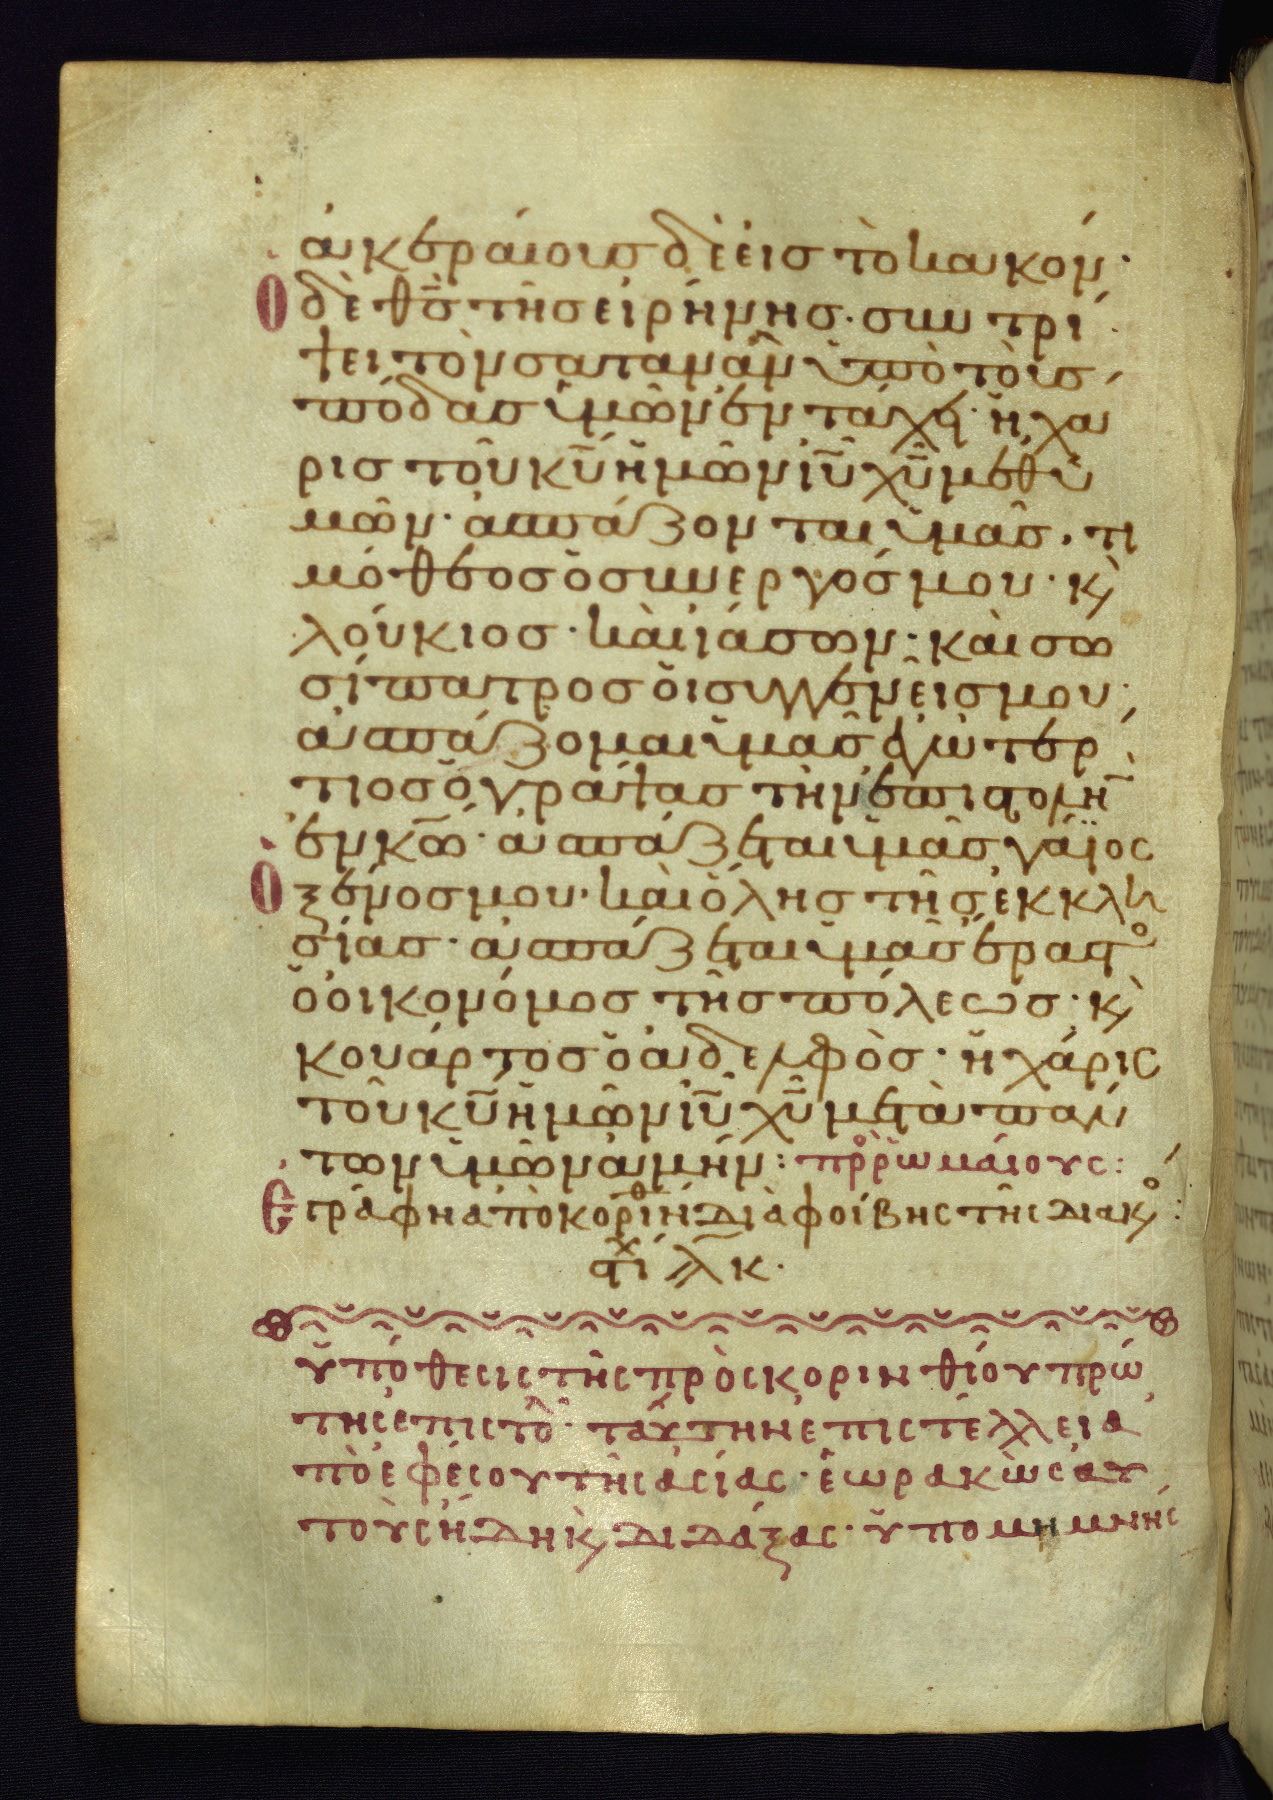 ἀκεραίους δὲ εἰς τὸ κακόν·
Ὁ δὲ θς τῆς εἰρήνης· συντρί
ψει τὸν σατανᾶν ὑπὸ τοὺς
πόδας ὑμῶν ἐν τάχει· ἡ χά
ρις τοῦ κυ ἡμῶν ιυ χυ μεθ' ὑ
μῶν· ἀσπάζονται ὑμᾶς· τι
μόθεος ὁ συνεργός μου· κ
λούκιος· καὶ ἰάσων· καὶ σω
σίπατρος οἱ συγγενεῖς μου·
ἀσπάζομαι ὑμᾶς ἐγὼ τέρ
τιος ὁ γράψας τὴν ἐπιστολὴ
ἐν κω· ἀσπάζεται ὑμᾶς γάϊος
Ὁ ξένος μου· καὶ ὅλης τῆς ἐκκλη
σίας· ἀσπάζεται ὑμᾶς ἔραστο
ὁ οἰκονόμος τῆς πόλεως· κ
κουάρτος ὁ ἀδελφὸς· ἡ χάρις
τοῦ κυ ἡμῶν ιυ χυ μετὰ πάν
των ὑμῶν ἀμήν: πρ ῥωμαίους:
Ἐγράφη ἀπὸ κορινθ διὰ φοίβης τῆς διακο:
στιχ λκ·
ὑπόθεσις τῆς πρὸς κορινθίου πρώ
της ἐπιστολ· ταύτην ἐπιστέλλει ἀ
πὸ ἐφέσου τῆς ἀσίας· ἑωρακὼς αὐ
τοὺς ἤδη κ διδάξας· ὑπομημνής